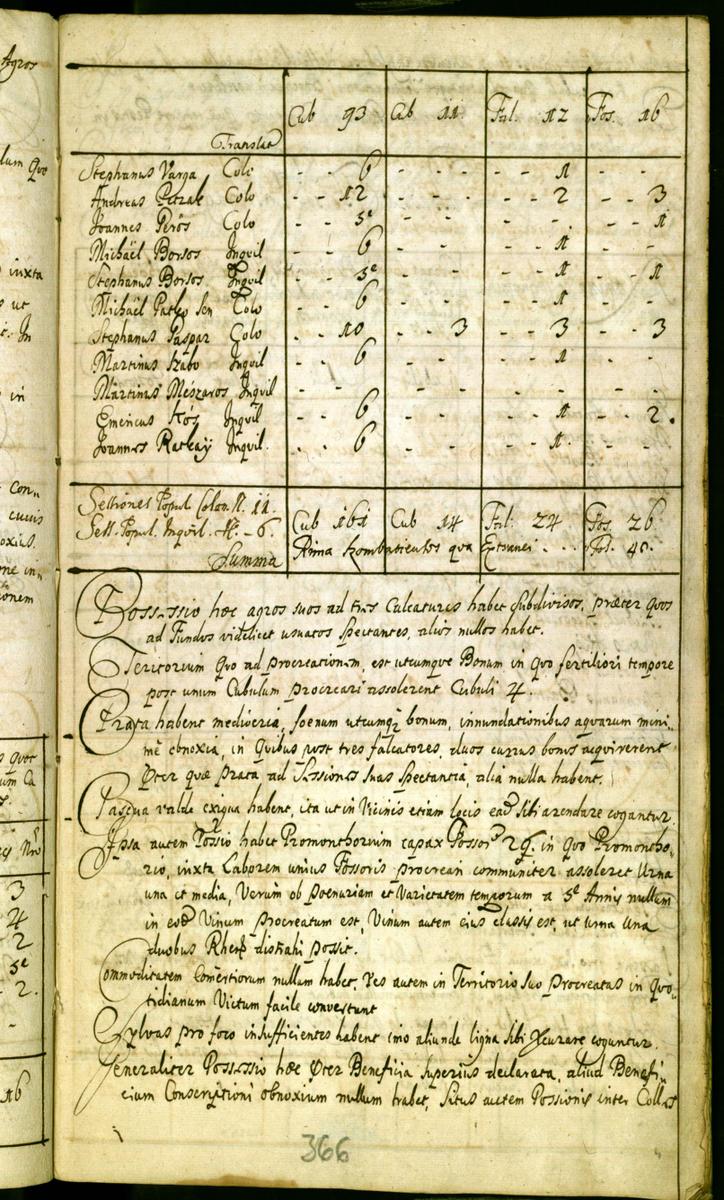 Agros
lum quo
iuxta
s ut
c. In
in
con„
cuius
oxius.
ne in„
ionem
s quot
um Ca
3
4
2
5
2.
-
16
Cub 93 Cub 11 Fal. 12 Fos. 16
Translat
Stephanus Varga Colo - - 6 - - - - - 1 - -
Andreas Petrak Colo - - 12 - - - - - 2 - - 3
Joannes Perös Colo - - 5 - - - - - - - - 1
Michaël Borsos Inquil - - 6 - - - - - 1 - -
Stephanus Borsos Inquil - - 5 - - - - - 1 - - 1
Michaël Patko Sen Colo - - 6 - - - - - 1 - -
Stephanus Gaspar Colo - - 10 - - 3 - - 3 - - 3
Martinus Szabo Inquil - - 6 - - - - - 1 - -
Martinus Mészaros Inquil - - - - - - - - -
Emericus Kós Inquil - - 6 - - - - - 1 - - 2.
Joannes Inquil. - - 6 - - - - - 1. - -
Sessiones Popul. Colon. N. 11.
Sess. Popul. Inquil. N. - 6. Cub 161 Cub 14 Fal. 24 Fos. 26
Summa qua Extranei . . . Fos. 40.
Possessio hæc agros suos ad tres Calcaturas habet subdivisos, præter quos
ad Fundos videlicet usuatos spectantes, alios nullos habet.
Teritorium quo ad procreationem, est utcumque Bonum in quo fertiliori tempore
post unum Cubulum procreari assolerent Cubuli 4.
Prata habent mediocria, foenum utcumq; bonum, innundationibus aquarum mini-
mè obnoxia, in quibus post tres falcatores, duos currus bonos acquirerent
Pter quæ prata ad Sessiones suas spectantia, alia nulla habent.
Pascua valde exigua habent, ita ut in Vicinis etiam locis ea sibi arendare cogantur.
Ipsa autem Possio habet Promonthorium capax Fossor 29. in quo Promontho-
rio, iuxta Laborem unius Fossoris procreari communiter assoleret Urna
una et media, Verum ob poenuriam et Varietatem temporum a 5 Annis nullum
in eod Vinum procreatum est, Vinum autem eius classis est, ut Urna Una
duobus Rhen distrahi possit.
Commoditatem Comertiorum nullam habet, Res autem in Territorio suo procreatas in quo-
tidianum Victum facile convertunt
Sylvas pro foco insufficientes habent imo aliunde ligna sibi Pcurare coguntur.
Generaliter Possessio hæc Pter Beneficia superius declarata, aliud Benefi-
cium Conscriptioni obnoxium nullum habet, Situs autem Possionis inter Colles
366